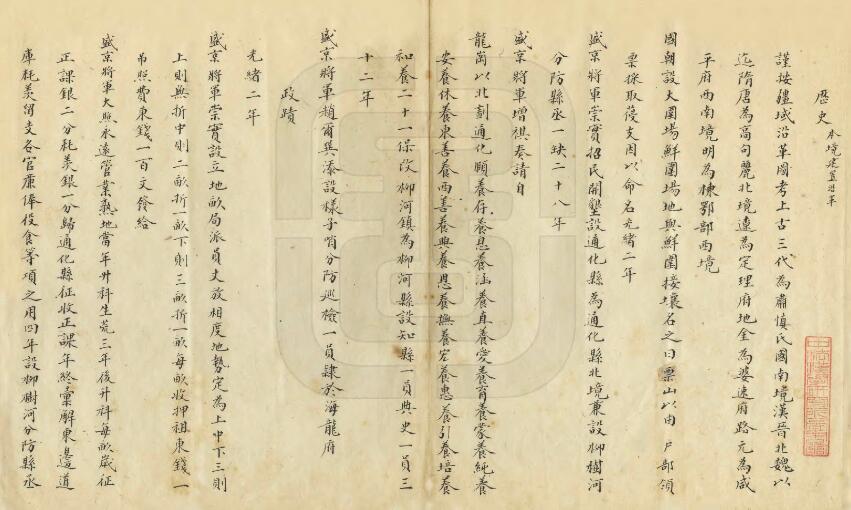 歷史 本境建置沿革
謹按疆域沿革國考上古三代為肅慎氏國南境漢晉北魏以
迄隋唐為高句麗北境遼為定理府地金為婆速府路元為咸
平府西南境明為棟鄂部西境
國朝設大圍場鮮圍場地與鮮圍接壤名之曰票山以由戶部領
票採取薓支因以命名光緒二年
盛京將軍崇實招民開墾設通化縣為通化縣北境兼設柳樹河
分防縣丞一缺二十八年
盛京將軍增祺奏請自
龍崗以北劃通化頤養存養息養涵養直養愛養育養蒙養純養
安養休養東善養西善養興養恩養撫養宏養惠養引養培養
和養二十一保改柳河鎮為柳河縣設知縣一員典史一員三
十二年
盛京將軍趙爾巽添設樣子哨分防巡檢一員隸於海龍府
政蹟
光緒二年
盛京將軍崇實設立地畝局派員丈放相度地勢定為上中下三則
上則無折中則二畝折一畝下則三畝折一畝每畝收押租東錢一
吊照費東錢一百文發給
盛京將軍大照永遠管業熟地當年升科生荒三年後升科每畝歲征
正課銀二分耗羨銀一分歸通化縣征收正課年終彙解東邊道
庫耗羨留支各官廉俸役食等項之用四年設柳樹河分防縣丞